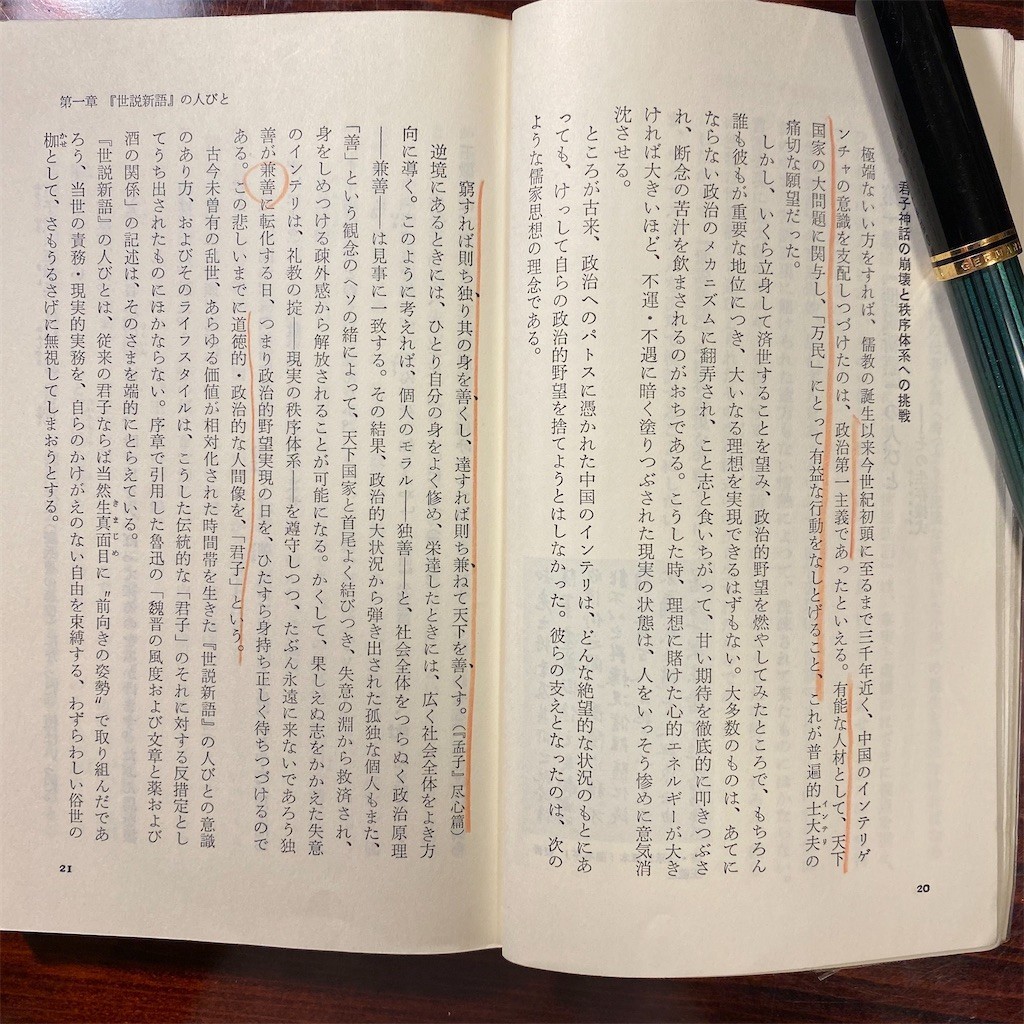 君子神話の崩壊と秩序体系への挑戦
極端ないい方をすれば、儒教の誕生以来今世紀初頭に至るまで三千年近く、中国のインテリゲ
ンチャの意識を支配しつづけたのは、政治第一主義であったといえる。有能な人材として、天下
国家の大問題に関与し、「万民」にとって有益な行動をなしとげること、これが普遍的士大夫インテリの
痛切な願望だった。
しかし、いくら立身して済世することを望み、政治的野望を燃やしてみたところで、もちろん
誰も彼もが重要な地位につき、大いなる理想を実現できるはずもない。大多数のものは、あてに
ならない政治のメカニズムに翻弄され、こと志と食いちがって、甘い期待を徹底的に叩きつぶさ
れ、断念の苦汁を飲まされるのがおちである。こうした時、理想に賭けた心的エネルギーが大き
ければ大きいほど、不運・不遇に暗く塗りつぶされた現実の状態は、人をいっそう惨めに意気消
沈させる。
ところが古来、政治へのパトスに憑かれた中国のインテリは、どんな絶望的な状況のもとにあ
っても、けっして自らの政治的野望を捨てようとはしなかった。彼らの支えとなったのは、次の
ような儒家思想の理念である。
20
GERMANY
第一章 『世説新語』の人びと
窮すれば則ち独り其の身を善くし、達すれば則ち兼ねて天下を善くす。（『孟子』尽心篇）
逆境にあるときには、ひとり自分の身をよく修め、栄達したときには、広く社会全体をよき方
向に導く。このように考えれば、個人のモラル――独善――と、社会全体をつらぬく政治原理
――兼善――は見事に一致する。その結果、政治的大状況から弾き出された孤独な個人もまた、
「善」という観念のヘソの緒によって、天下国家と首尾よく結びつき、失意の淵から救済され、
身をしめつける疎外感から解放されることが可能になる。かくして、果しえぬ志をかかえた失意
のインテリは、礼教の掟――現実の秩序体系――を遵守しつつ、たぶん永遠に来ないであろう独
善が兼善に転化する日、つまり政治的野望実現の日を、ひたすら身持ち正しく待ちつづけるので
ある。この悲しいまでに道徳的・政治的な人間像を、「君子」という。
古今未曽有の乱世、あらゆる価値が相対化された時間帯を生きた『世説新語』の人びとの意識
のあり方、およびそのライフスタイルは、こうした伝統的な「君子」のそれに対する反措定とし
てうち出されたものにほかならない。序章で引用した魯迅の「魏晋の風度および文章と薬および
酒の関係」の記述は、そのさまを端的にとらえている。
『世説新語』の人びとは、従来の君子ならば当然生真面目きまじめに〝前向きの姿勢〟で取り組んだであ
ろう、当世の責務・現実的実務を、自らのかけがえのない自由を束縛する、わずらわしい俗世の
枷かせとして、さもうるさげに無視してしまおうとする。
21